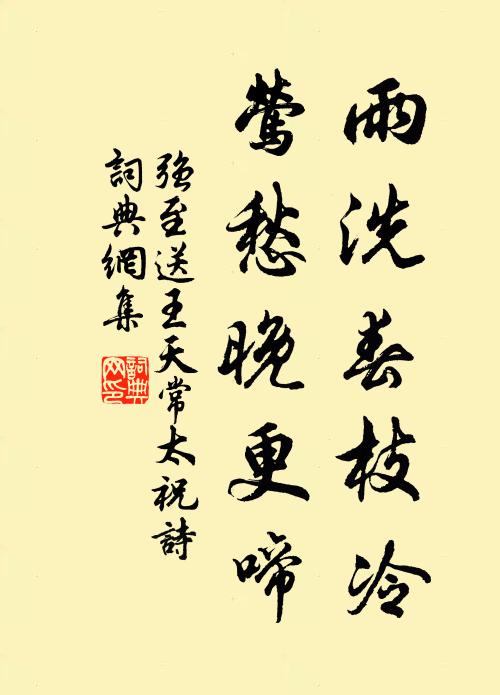 雨洗春枝冷
鶯愁晚更啼
強至送王天常太祝詩
詞典網集
詞典
网印